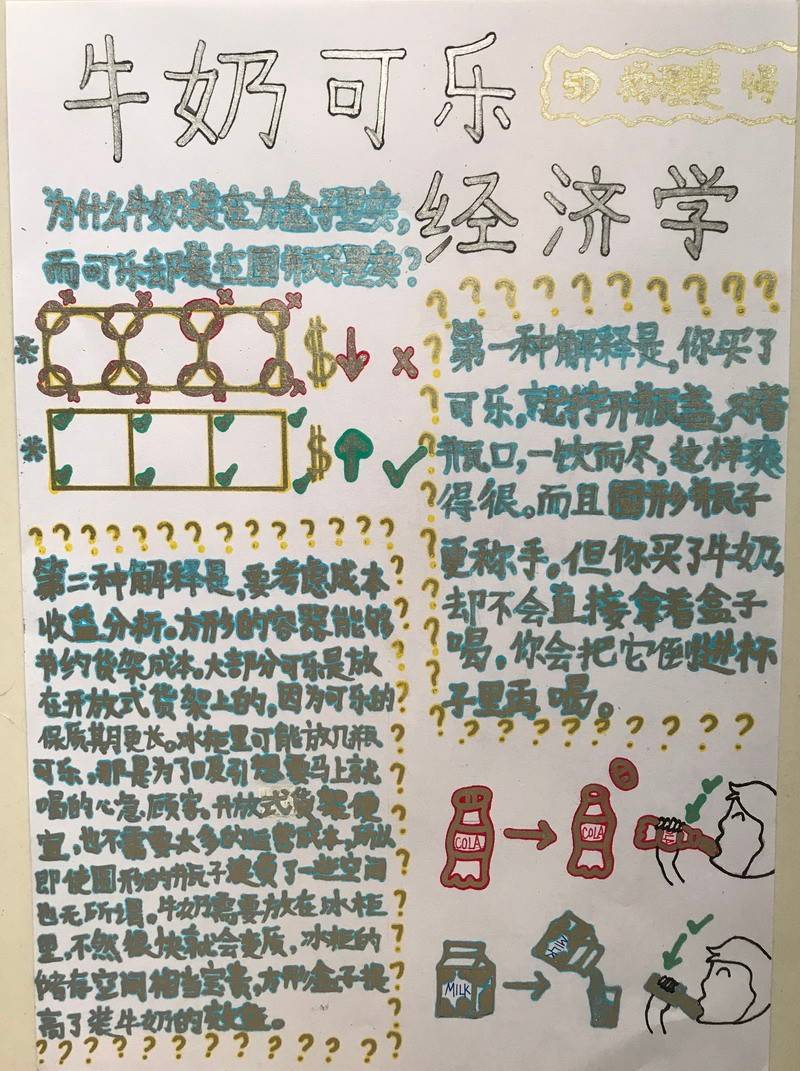 牛奶可乐
经济学
为什么牛奶装在方盒子里卖,
而可乐却装在圆形瓶里卖?
$
$
第一种解释是,你买了
可乐,就拧开瓶盖,对着
瓶口,一饮而尽,这样爽
得很。而且圆形瓶子
更称手。但你买了牛奶,
却不会直接拿着盒子
喝。你会把它倒进杯
子里再喝。
第二种解释是,要考虑成本
收益分析。方形的容器能够
节约货架成本。大部分可乐是放
在开放式货架上的,因为可乐的
保质期更长。冰柜里可能放几瓶
可乐,那是为了吸引想要马上就
喝的心急顾客。开放式货架便
宜,也不需要太多的运营成本,所以
即使圆形的瓶子浪费了一些空间
也无所谓。牛奶需要放在冰柜
里,不然很快就会变质,冰柜的
储存空间相当宝贵,方形盒子提
高了装牛奶的效益。
COLA
COLA
MILK
MILK